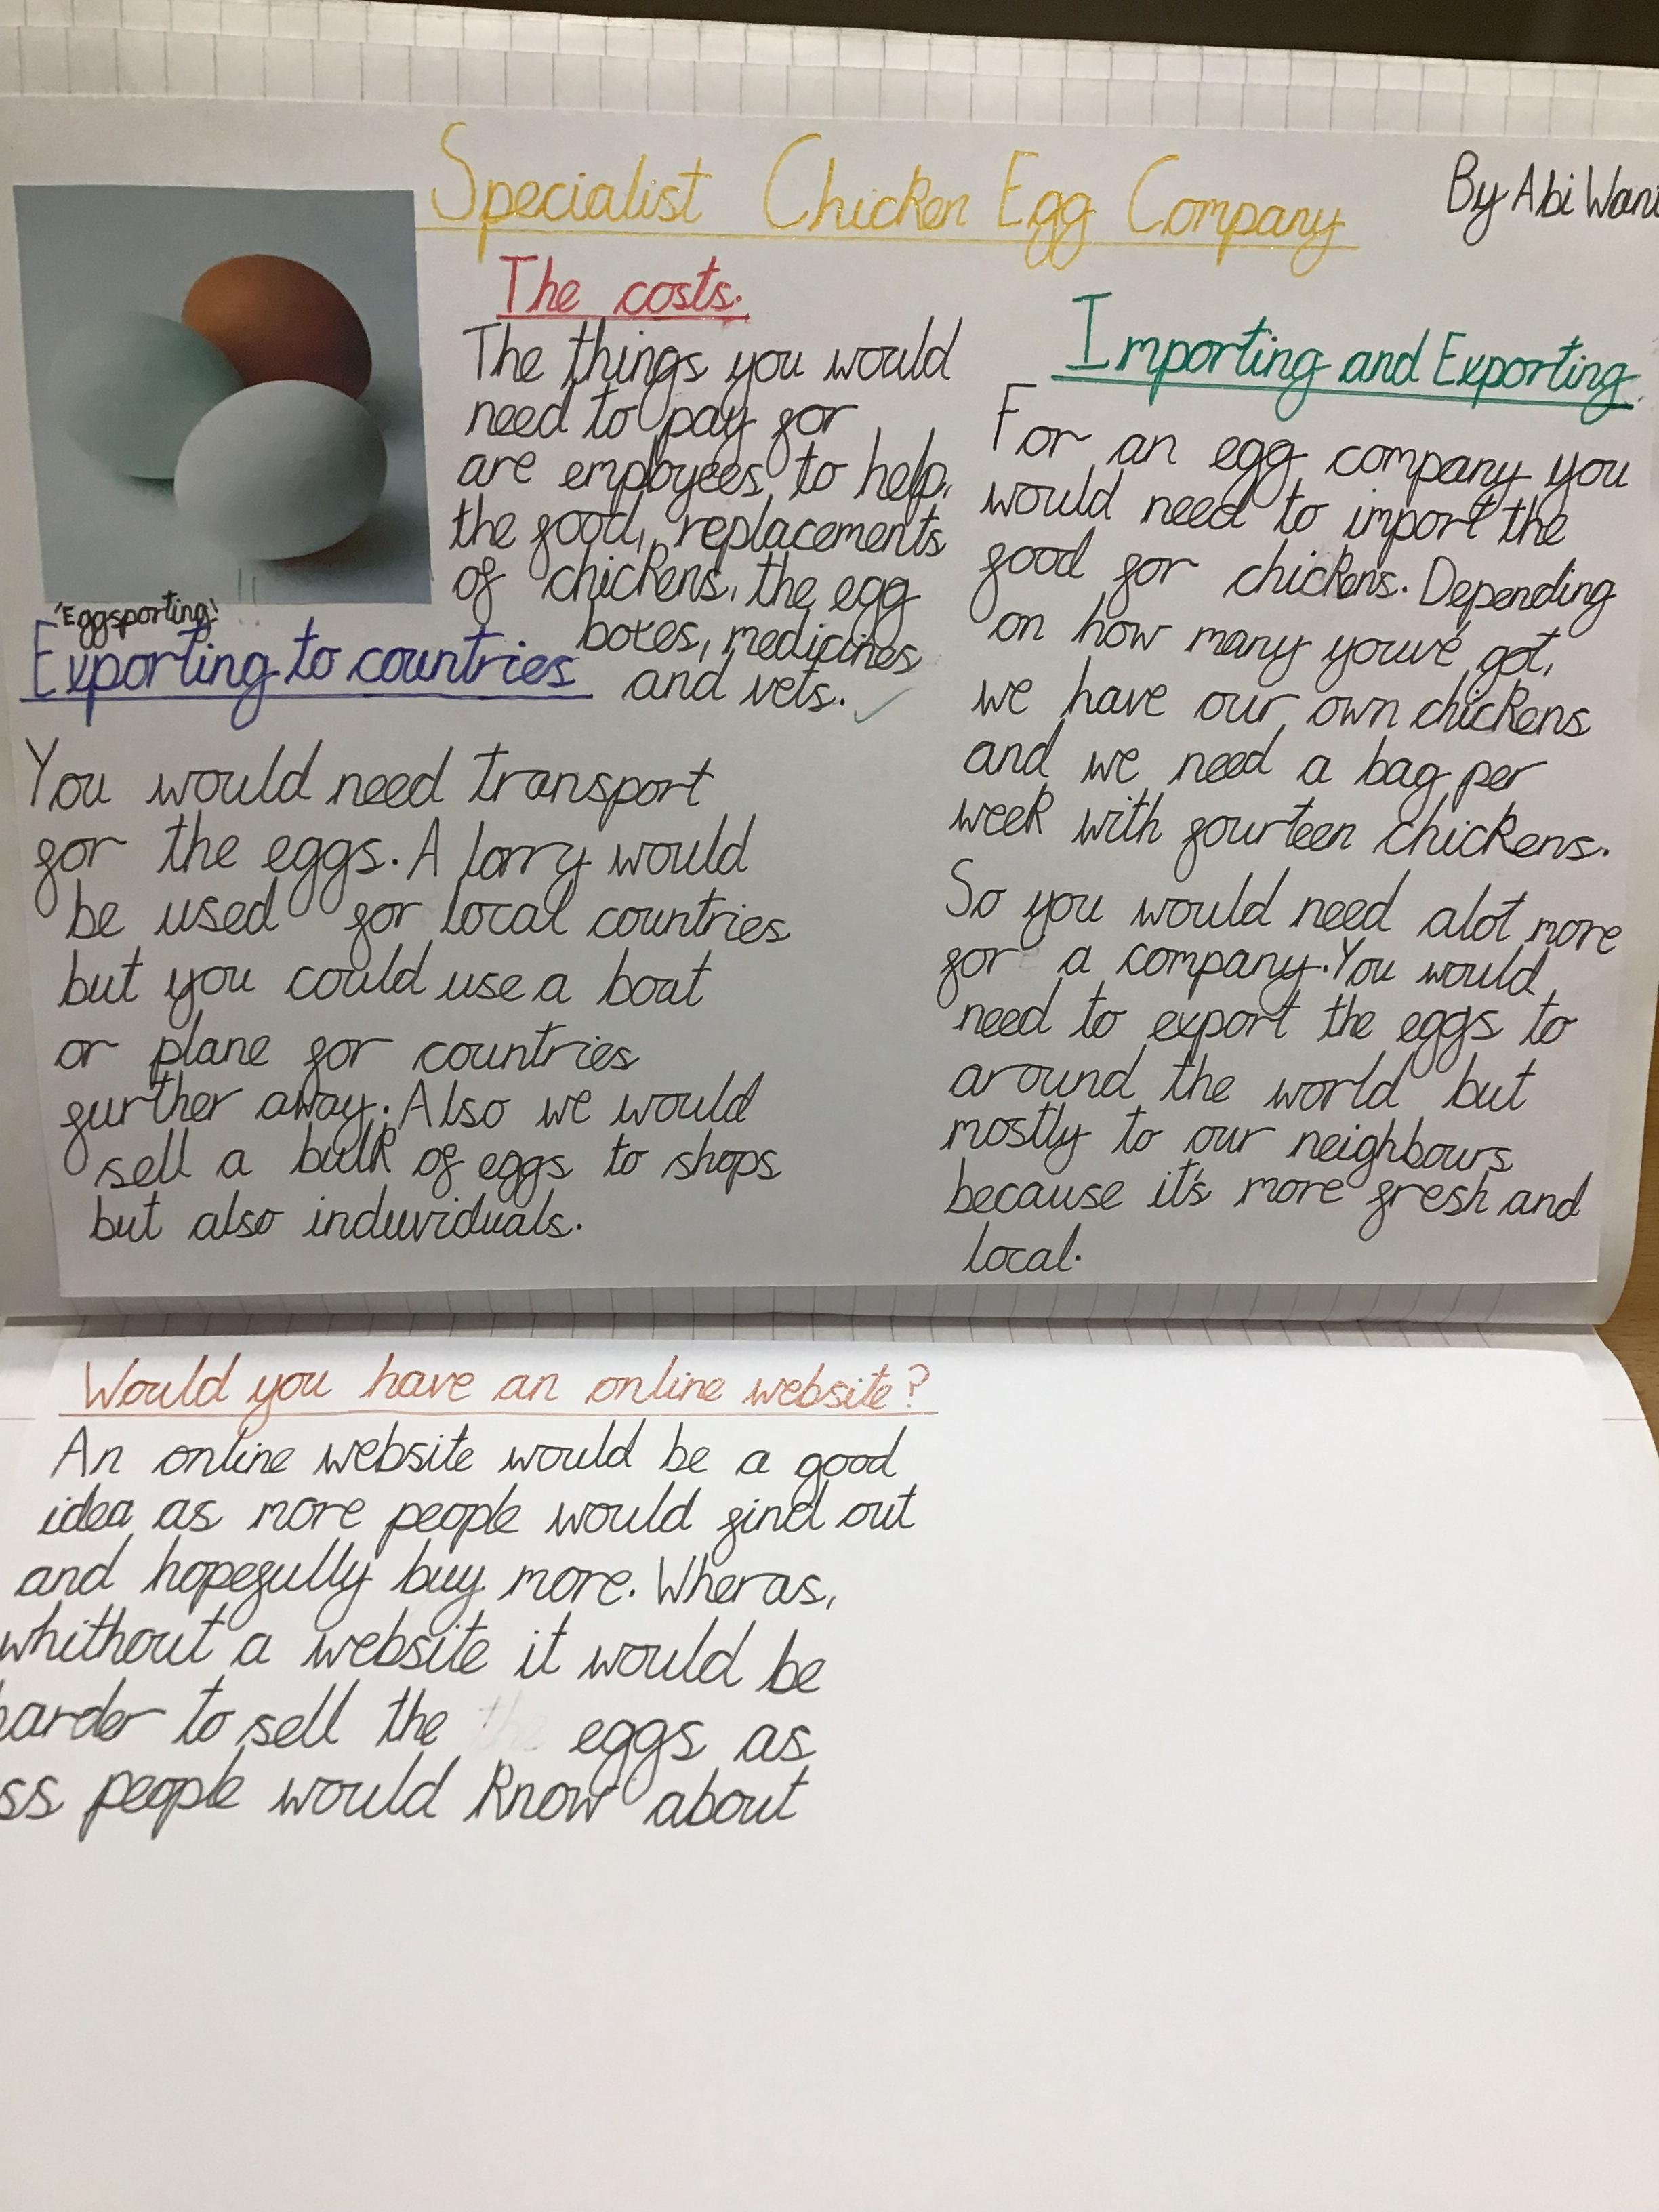 Specialist Chicken Egg Company
By Abi Wan
The costs.
The things you would
need to pay for
are employees to help,
the food, replacements
of chickens, the egg
boxes, medicines
and vets.
'Eggsporting'
Exporting to countries
You would need transport
for the eggs. A lorry would
be used for local countries
but you could use a boat
or plane for countries
further away. Also we would
sell a bulk of eggs to shops
but also induviduals.
Importing and Exporting.
For an egg company you
would need to import the
food for chickens. Depending
on how many youve got,
we have our own chickens
and we need a bag per
week with fourteen chickens.
So you would need alot more
for a company. You would
need to export the eggs to
around the world but
mostly to our neighbours
because it's more fresh and
local.
Would you have an online website?
An online website would be a good
idea as more people would find out
and hopefully buy more. Wheras,
whithout a website it would be
harder to sell the eggs as
ss people would know about